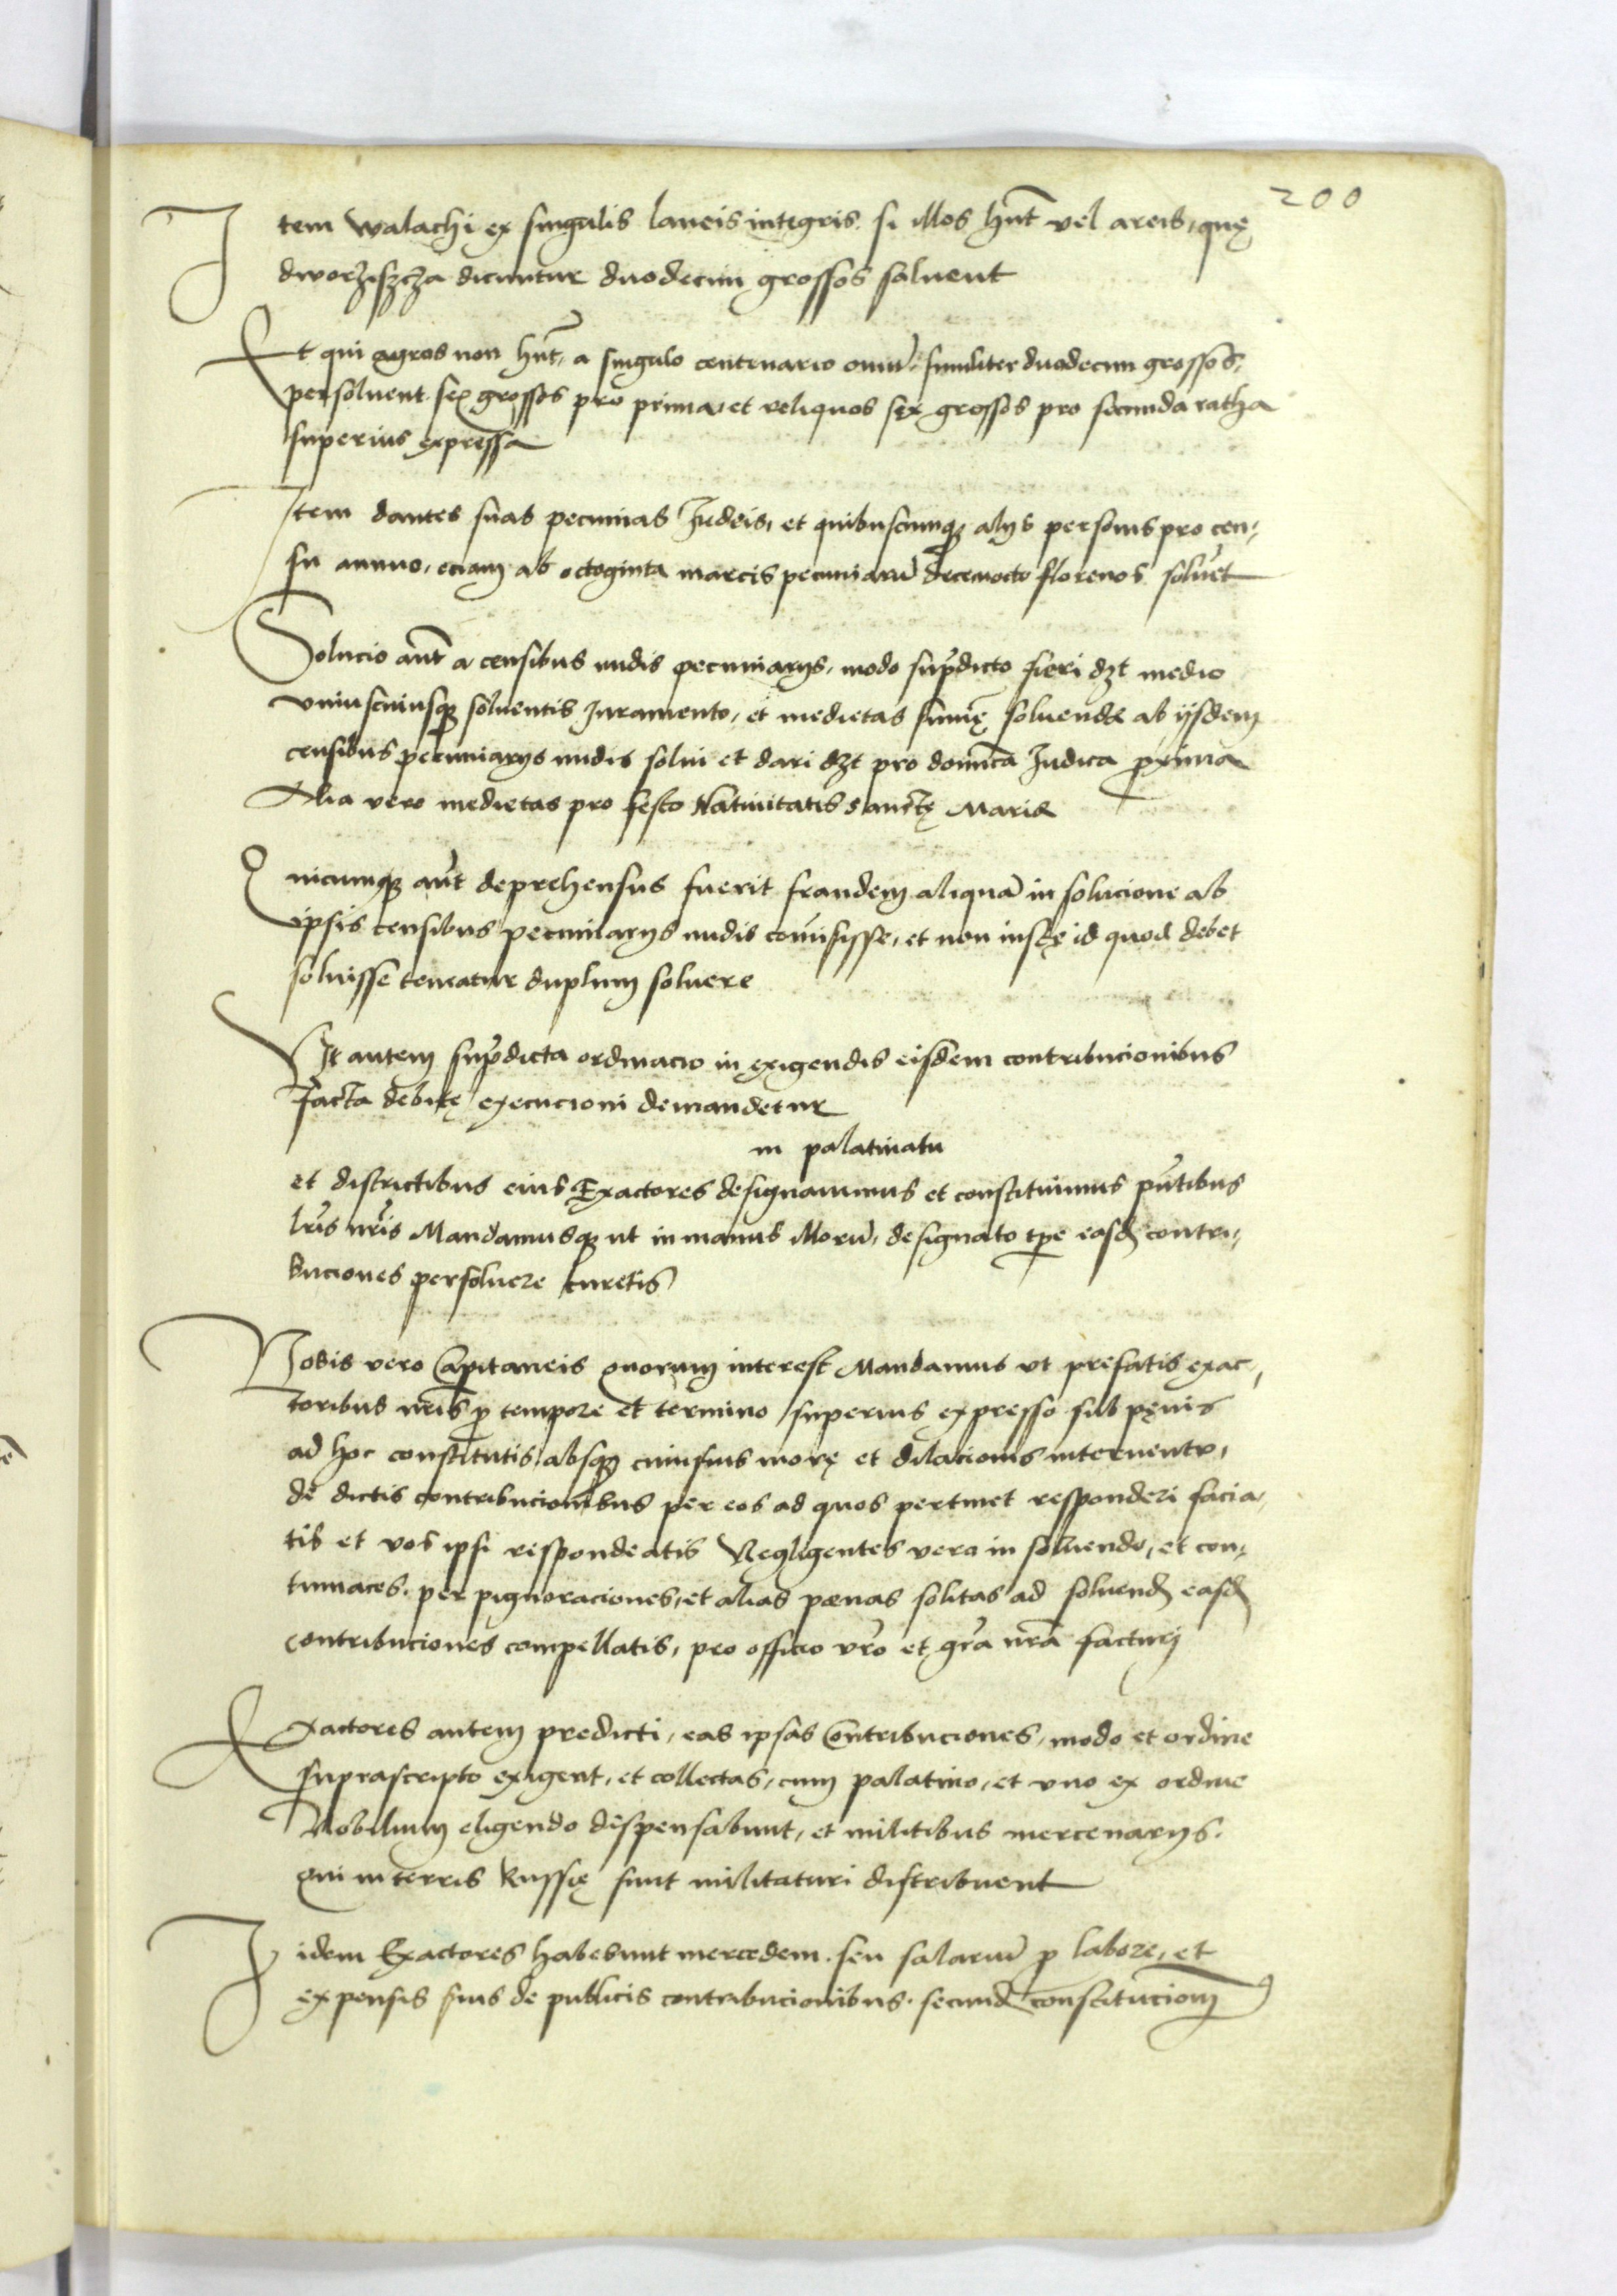 200
Item Walachi ex singulis laneis integris. si illos hn̄t vel areis, quę
dworżiszcza dicuntur duodecim grossos soluent
Et qui agros non hn̄t, a singulo centenario ouiū. similiter duodecim grossos,
persoluent. sex grossos pro prima, et reliquos sex grossos pro secunda ratha
superius expressa
Item dantes suas pecunias Judeis, et quibuscunqȝ alijs personis pro cen,
su annuo, eciam ab octoginta marcis pecuniarū decemocto florenos soluēt
Solucio aūt a censibus nudis pecuniarijs, modo sup̄dicto fieri dȝt medio
vniuscuiusqȝ soluentis Juramento, et medietas sum̄ę soluendę ab ijsdem
censibus pecuniarijs nudis solui et dari dȝt pro domīca Judica ꝓxima
Alia vero medietas pro festo Natiuitatis sanctę Marię
Quicunqȝ aūt deprehensus fuerit fraudem aliquā in solucione ab
ipsis censibus pecuniarijs nudis com̄isisse, et non iustę id quod debet
soluisse teneatur duplum soluere
Vt autem sup̄dicta ordinacio in exigendis eisdem contribucionibus
facta debitę execucioni demandetur
in palatinatu
et districtibus eius Exactores designauimus et constituimus pn̄tibus
lr̄is nr̄is Mandamusqȝ ut in manus illorū, designato tp̄e easdē contri,
buciones persoluere curetis
Vobis vero Capitaneis quorum interest Mandamus vt prefatis exac,
toribus nr̄is ꝓ tempore et termino superius expresso sub pęnis
ad hoc constitutis, absqȝ cuiusuis morę et dilacionis interuentu,
de dictis contribucionibus per eos ad quos pertinet responderi facia,
tis et vos ipsi respondeatis Negligentes vero in soluendo, et con,
tumaces. per pignoraciones, et alias pœnas solitas ad soluendē easdē
contribuciones compellatis, pro officio vr̄o et gr̄a nr̄a facturi
Exactores autem predicti, eas ipsas Contribuciones, modo et ordine
suprascripto exigent, et collectas, cum palatino, et vno ex ordine
Nobilium eligendo dispensabunt, et militibus mercenarijs.
qui in terris Russię sunt militaturi distribuent
Iidem Exactores habebunt mercedem. seu salariū ꝓ labore, et
expensis suis de publicis contribucionibus. secundū constitucionē